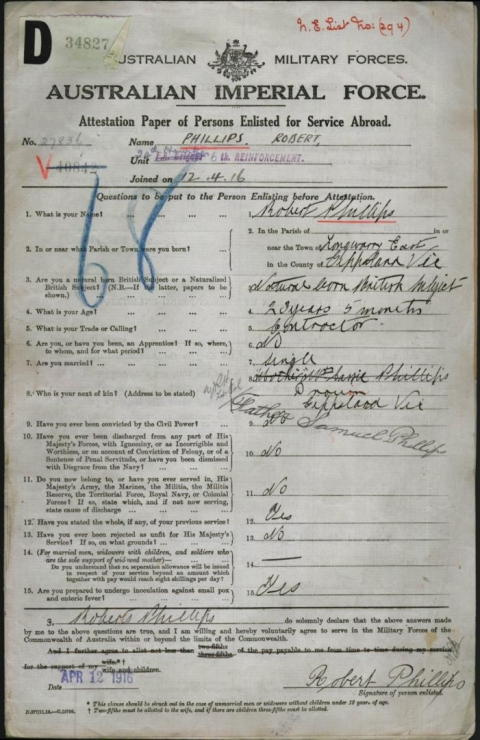 D
34827
N.E. List No: (294)
AUSTRALIAN MILITARY FORCES.
AUSTRALIAN IMPERIAL FORCE.
Attestation Paper of Persons Enlisted for Service Abroad.
No. 27836 Name PHILLIPS, ROBERT,
V 40842 Unit 6 th. REINFORCEMENT.
Joined on 12.4.16
68
Questions to be put to the Person Enlisting before Attestation.
1. What is your Name? ... ... 1. Robert Phillips
2. In or near what Parish or Town were you born? ... 2. In the Parish of in or
near the Town of Longwarry East
in the County of Gippsland Vic
3. Are you a natural born British Subject or a Naturalised
British Subject? (N.B.—If the latter, papers to be
shown.) 3. Natural born British Subject
4. What is your Age? ... ... 4. 23 years 5 months
5. What is your Trade or Calling? ... ... 5. Contractor
6. Are you, or have you been, an Apprentice? If so, where,
to whom, and for what period? ... 6. No
7. Are you married? ... ... 7. Single
8. Who is your next of kin? (Address to be stated) 8. Phillips
Drouin
Gippsland Vic
Father Samuel Phillips
9. Have you ever been convicted by the Civil Power? ... 9. No
10. Have you ever been discharged from any part of His
Majesty's Forces, with Ignominy, or as Incorrigible and
Worthless, or on account of Conviction of Felony, or of a
Sentence of Penal Servitude, or have you been dismissed
with Disgrace from the Navy? ... 10. No
11. Do you now belong to, or have you ever served in, His
Majesty's Army, the Marines, the Militia, the Militia
Reserve, the Territorial Force, Royal Navy, or Colonial
Forces? If so, state which, and if not now serving,
state cause of discharge ... 11. No
12. Have you stated the whole, if any, of your previous service? 12. Yes
13. Have you ever been rejected as unfit for His Majesty's
Service? If so, on what grounds? ... 13. No
14. (For married men, widowers with children, and soldiers who
are the sole support of widowed mother)—
Do you understand that no separation allowance will be issued
in respect of your service beyond an amount which
together with pay would reach eight shillings per day? 14. —
15. Are you prepared to undergo inoculation against small pox
and enteric fever? ... 15. Yes
I, Robert Phillips do solemnly declare that the above answers made
by me to the above questions are true, and I am willing and hereby voluntarily agree to serve in the Military Forces of the
Commonwealth of Australia within or beyond the limits of the Commonwealth.
And I further agree to allot not less than two-fifths three-fifths of the pay payable to me from time to time during my service
for the support of my wife*† wife and children.
APR 12 1916
Date
Robert Phillips
Signature of person enlisted.
* This clause should be struck out in the case of unmarried men or widowers without children under 18 years of age.
† Two-fifths must be allotted to the wife, and if there are children three-fifths must be allotted.